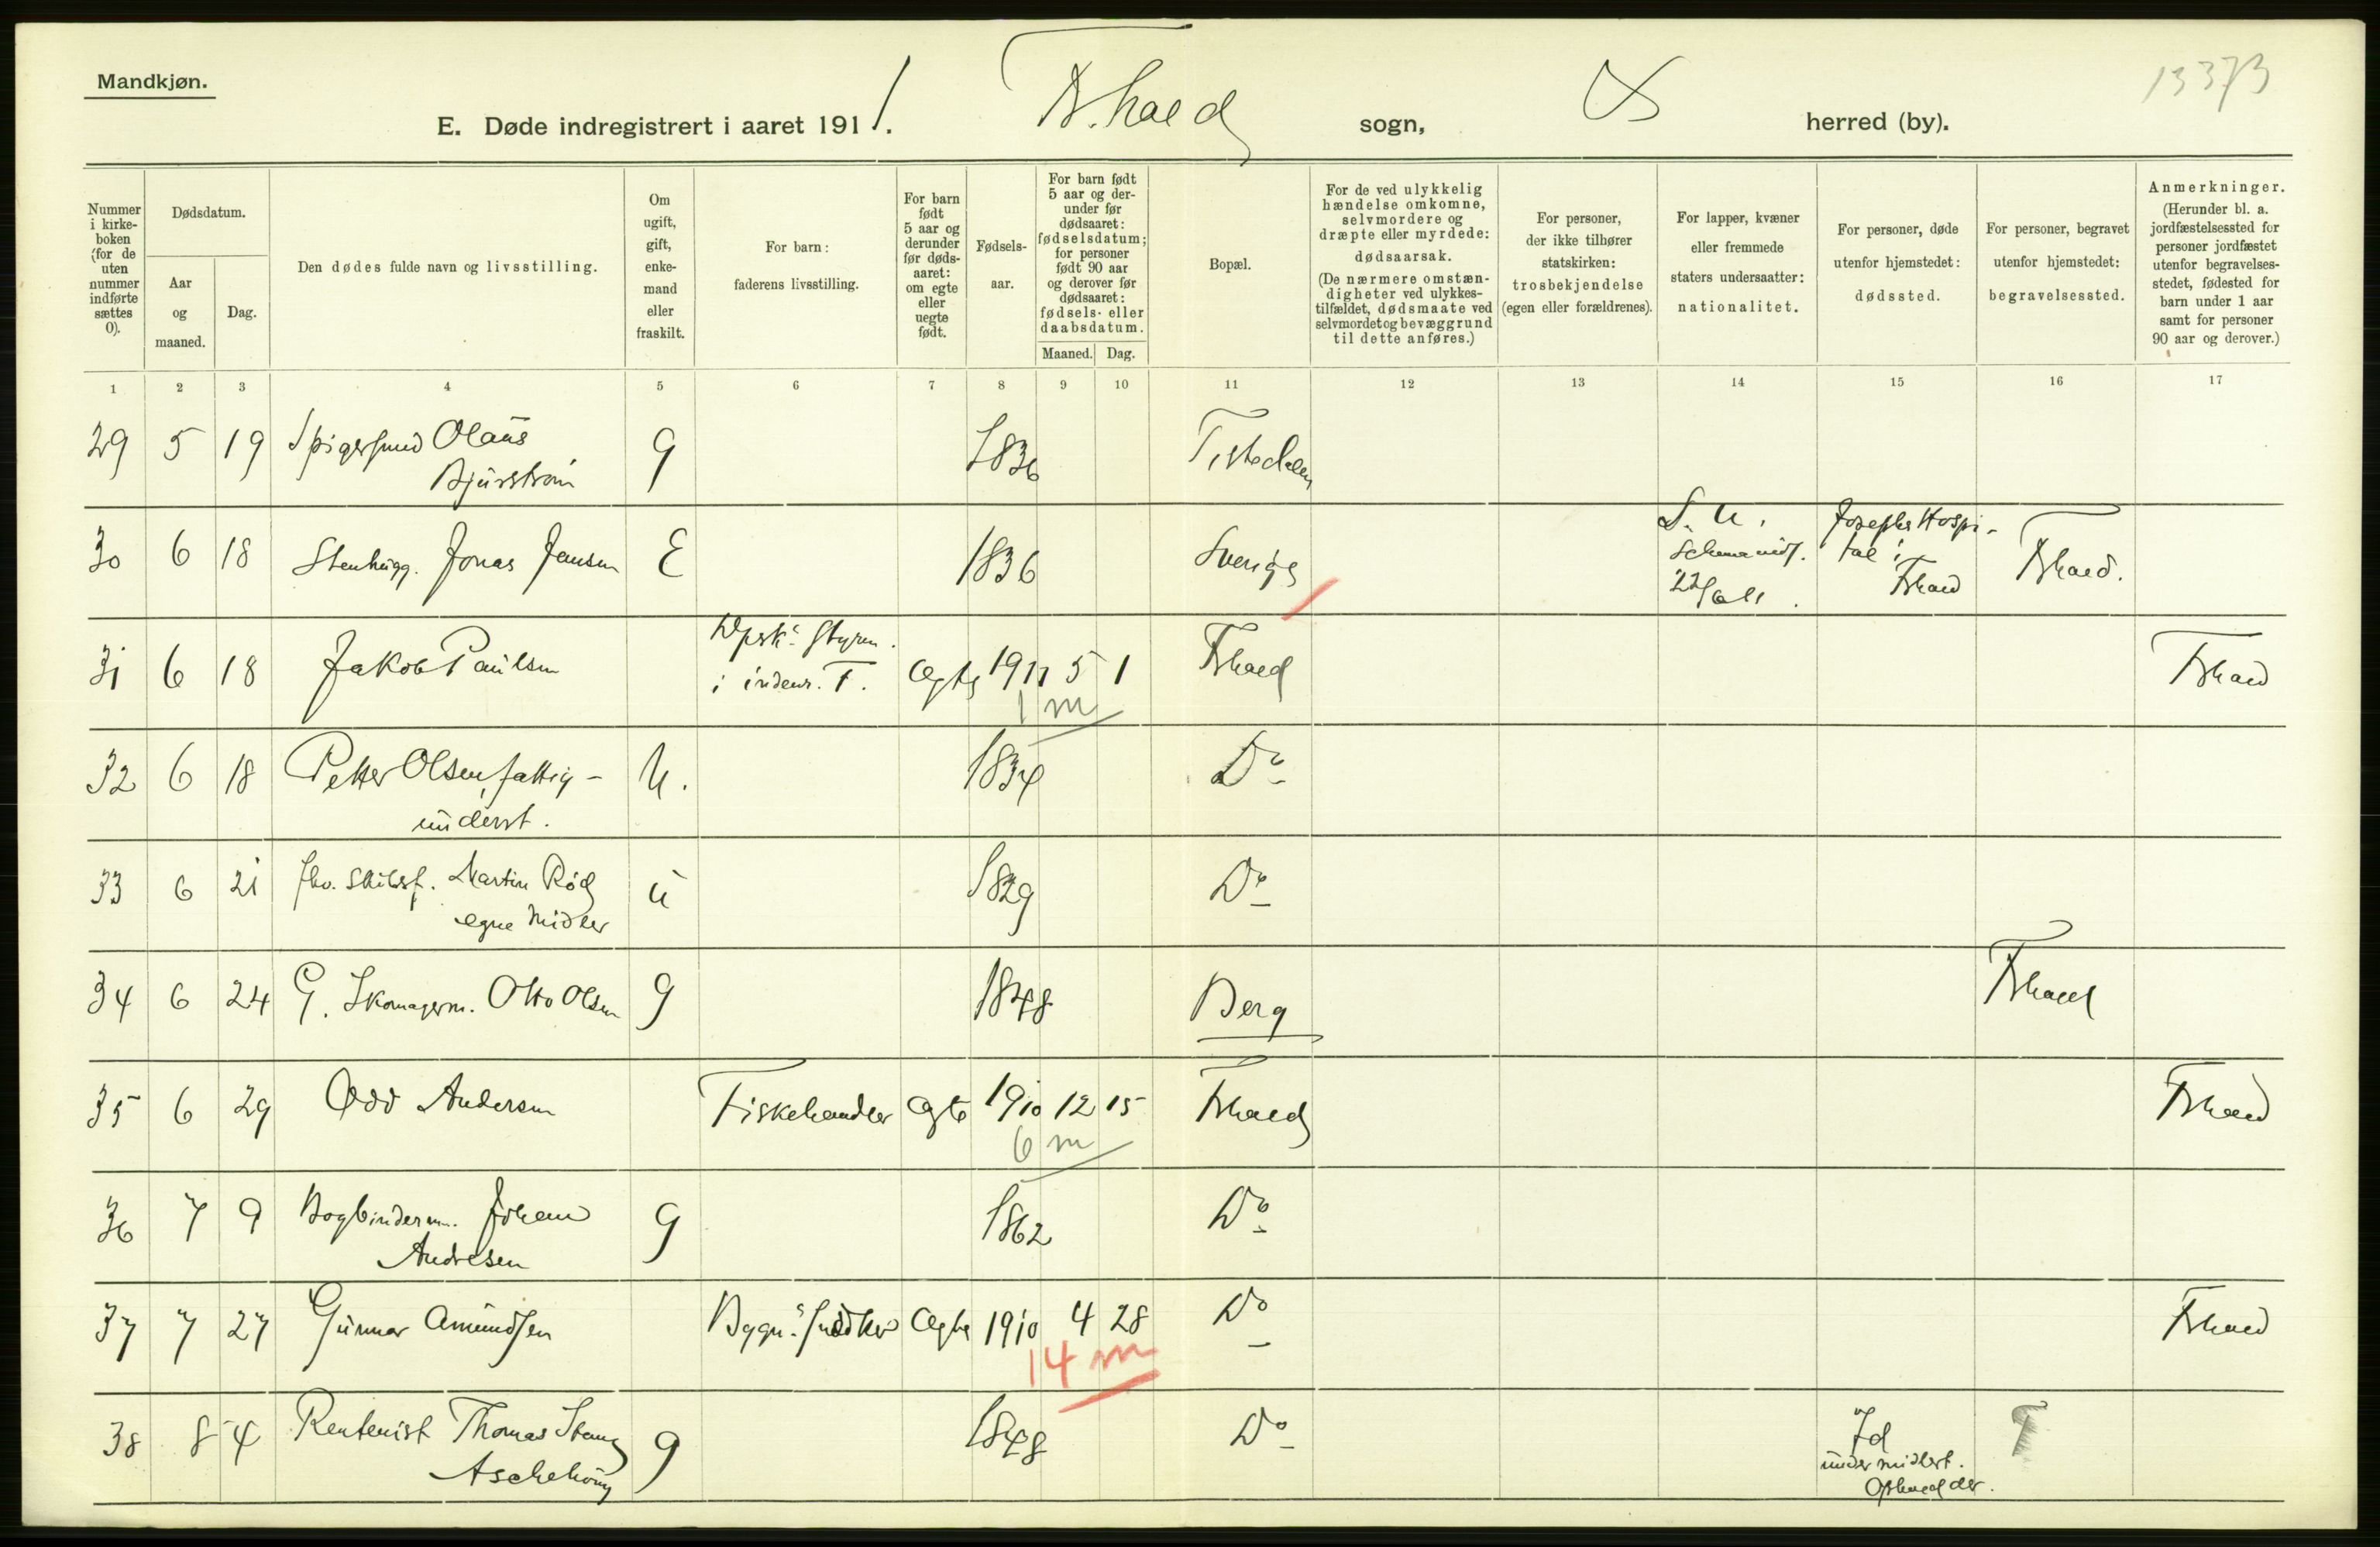 Mandkjøn.
13373
E. Døde indregistrert i aaret 1911. F.hald sogn, herred (by).
Nummer i kirkeboken (for de uten nummer indførte sættes 0).
Dødsdatum.
Aar og maaned.
Dag.
Den dødes fulde navn og livsstilling.
Om ugift, gift, enkemand eller fraskilt.
For barn: faderens livsstilling.
For barn født 5 aar og derunder før dødsaaret: om egte eller uegte født.
Fødselsaar.
For barn født 5 aar og derunder før dødsaaret: fødselsdatum; for personer født 90 aar og derover før dødsaaret: fødsels- eller daabsdatum.
Maaned. Dag.
Bopæl.
For de ved ulykkelig hændelse omkomne, selvmordere og dræpte eller myrdede: dødsaarsak. (De nærmere omstændigheter ved ulykkestilfældet, dødsmaate ved selvmordet og bevæggrund til dette anføres.)
For personer, der ikke tilhører statskirken: trosbekjendelse (egen eller forældrenes).
For lapper, kvæner eller fremmede staters undersaatter: nationalitet.
For personer, døde utenfor hjemstedet: dødssted.
For personer, begravet utenfor hjemstedet: begravelsessted.
Anmerkninger. (Herunder bl. a. jordfæstelsessted for personer jordfæstet utenfor begravelsesstedet, fødested for barn under 1 aar samt for personer 90 aar og derover.)
1 2 3 4 5 6 7 8 9 10 11 12 13 14 15 16 17
29 5 19 Spigersmed Olaus Bjurström g 1836 Tistedalen
30 6 18 Stenhugg. Jonas Jansen E 1836 Sverige S. U. 22/6 11. Josephs Hospital i Fhald Fhald.
31 6 18 Jakob Paulsen i indenr. F. Egte 1911 5 1 Fhald Fhald
1 m
32 6 18 Petter Olsen, fattigunderst. U. 1834 Do
33 6 21 fhv. Skibsf. Martin Rød egne Midler u 1829 Do
34 6 24 G. Skomagerm. Otto Olsen g 1848 Berg Fhald
35 6 29 Odd Andersen Fiskehandler Egte 1910 12 15 Fhald Fhald
6 m
36 7 9 Bogbinderm. Johan Andresen g 1862 Do
37 7 27 Gunnar Amundsen Bygn.s Snedker Egte 1910 4 28 Do Fhald
14 m
38 8 4 Rentenist Thomas Stang Aschehoug g 1848 Do Id under midlert. Ophold der. F